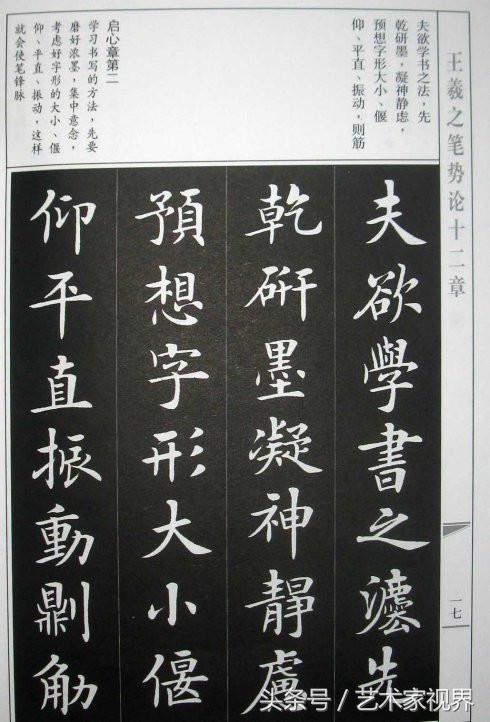 王羲之笔势论十二章
一七
夫欲学书之法，先
乾研墨，凝神静虑，
预想字形大小、偃
仰、平直、振动，则筋
启心章第二
学习书写的方法，先要
磨好浓墨，集中意念，
考虑好字形的大小、偃
仰、平直、振动，这样
就会使笔锋脉
夫欲學書之灋先
乾硏墨凝神靜慮
預想字形大小偃
仰平直振動則觔
头条号 / 艺术家视界